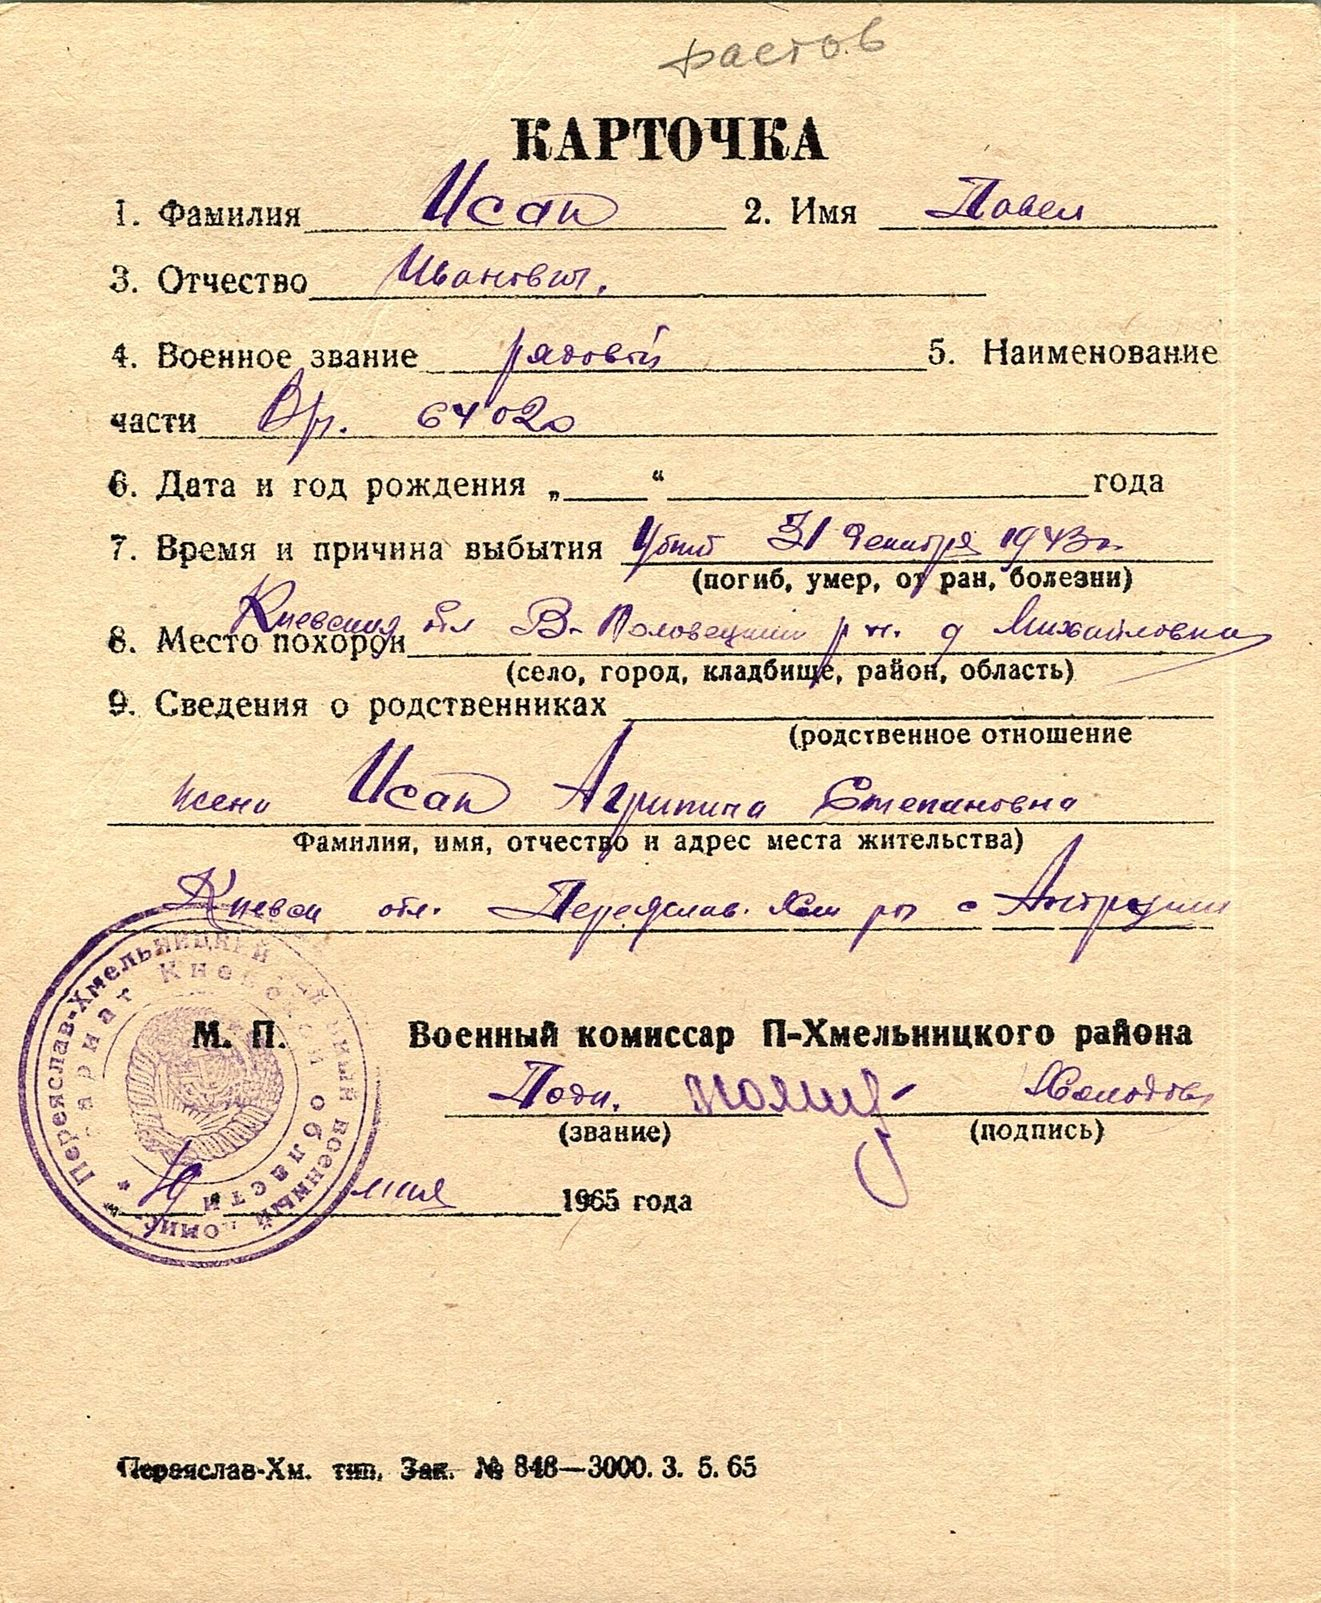 КАРТОЧКА
1. Фамилия Исап 2. Имя Павел
3. Отчество Иванович.
4. Военное звание рядовой 5. Наименование
части 64020
6. Дата и год рождения „ “ года
7. Время и причина выбытия Убит 31 декабря 1943 г.
(погиб, умер, от ран, болезни)
Киевская обл В-Половецкий р-н. д Михайловка
8. Место похорон
(село, город, кладбище, район, область)
9. Сведения о родственниках
(родственное отношение
жена Исап Агрипина Степановна
Фамилия, имя, отчество и адрес места жительства)
Киевск обл. Переяслав. Хм р-н с
Переяслав-Хмельницкий военный
Киевской области
М. П. Военный комиссар П-Хмельницкого района
(звание) (подпись)
1965 года
Переяслав-Хм. тип. Зак. № 848—3000. 3. 5. 65